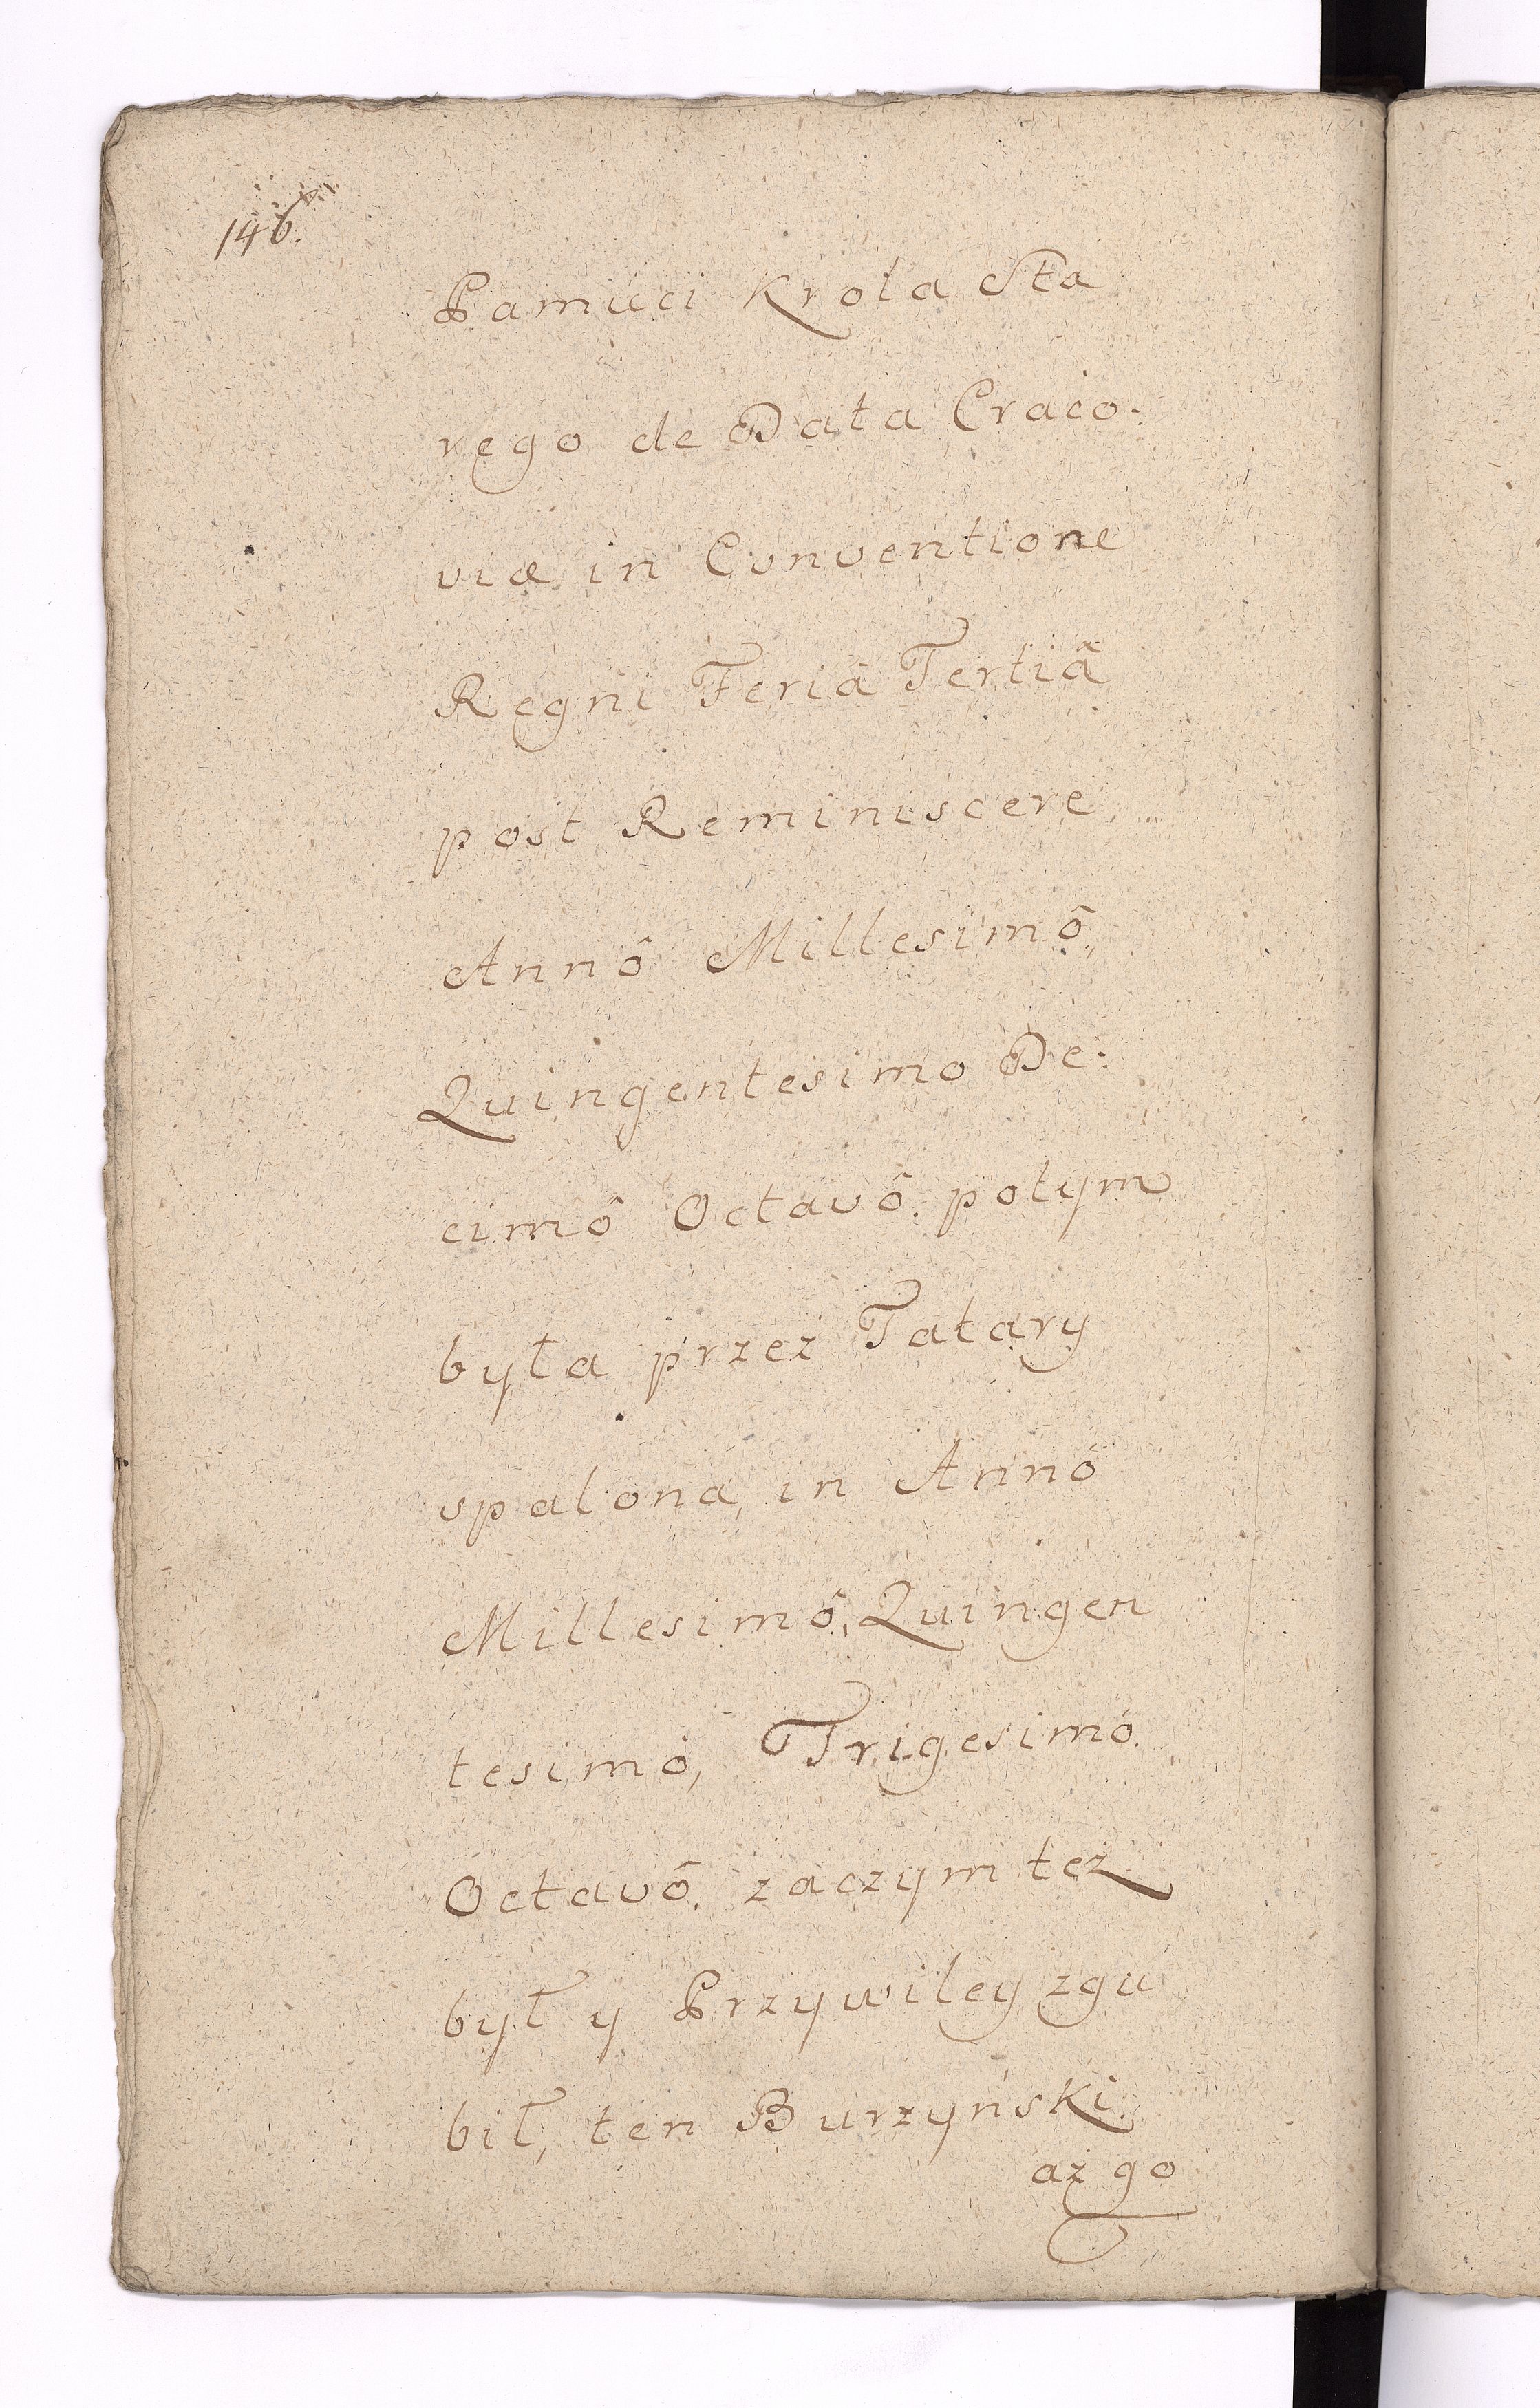 146.
Pamięci Krola Sta
rego de Data Craco.
viæ in Conventione
Regni Feriâ Tertiâ
post Reminiscere
Annô Millesimô,
Quingentesimo De:
cimô Octavô. potym
była przez Tatary
spalona, in Annô
Millesimô, Quingen
tesimô, Trigesimô.
Octavô. zaczym też
był y Przywiley zgu
bił, ten Burzyński.
aż go